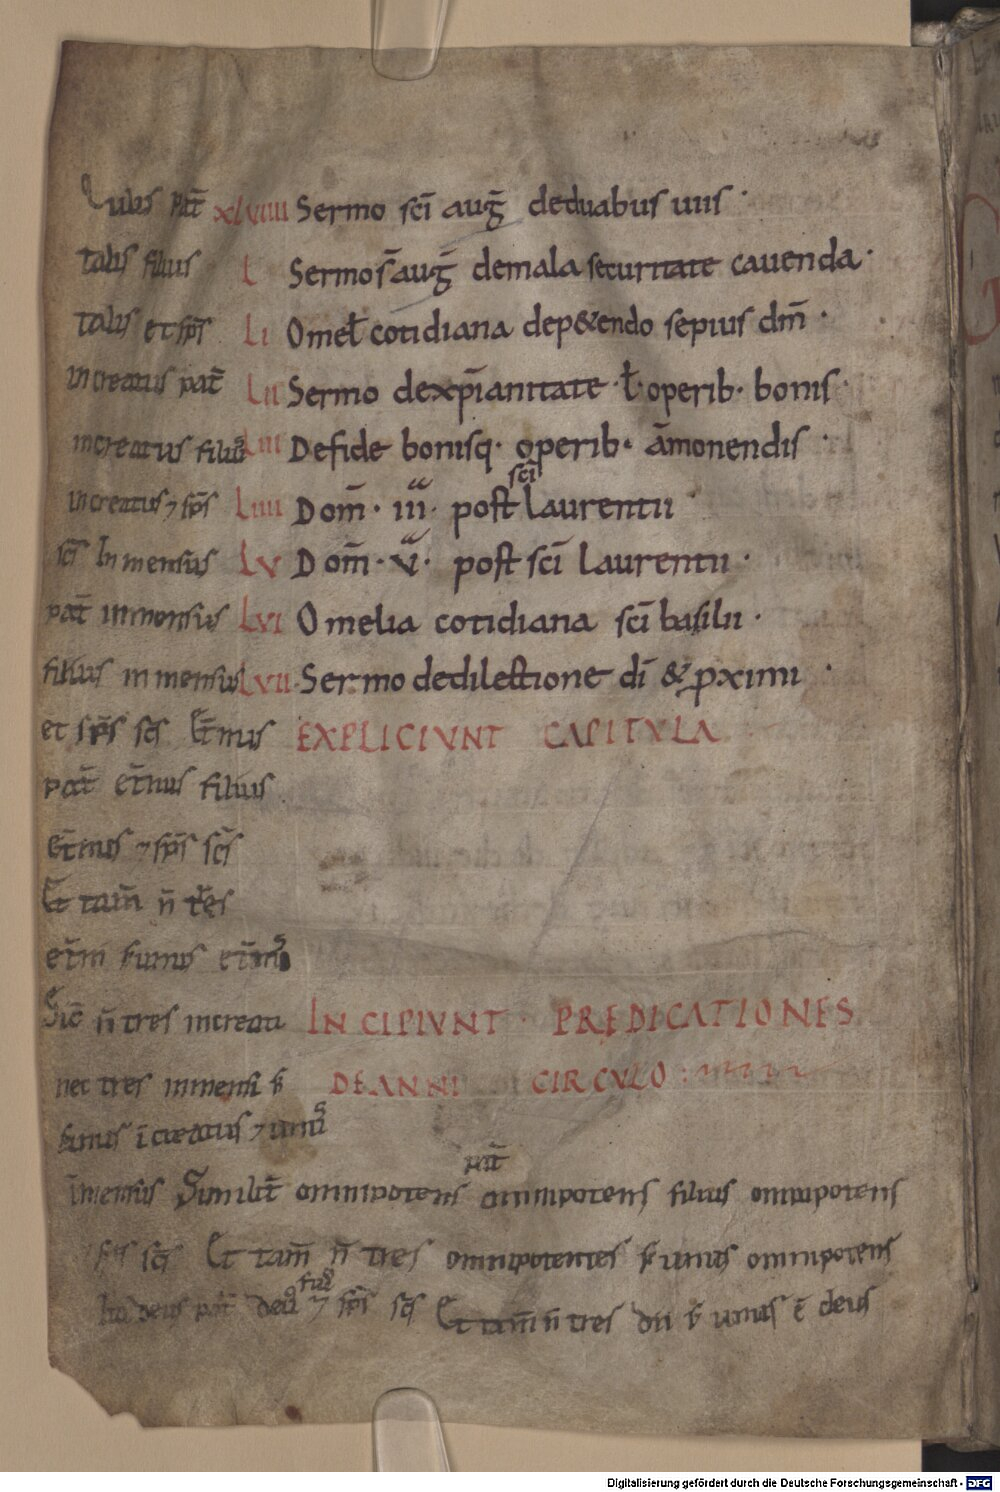 Qualis pat̄ xlviiii Sermo sc̄i auḡ deduabus uiis ·
talis filius L Sermo s̄ auḡ demala securitate cauenda ·
talis et sp̄s Li Omeł cotidiana dep&endo sepius dn̄m ·
increatus pat̄ Lii Sermo dexp̄ianitate · ł · operib · bonis ·
increatus filius Liii Defide bonisq · operib · āmonendis ·
increatus ⁊ sp̄s Liiii Dom̄ · iii · post sc̄i laurentii ·
sc̄s Inmensus Lv Dom̄ · v · post sc̄i laurentii ·
pat̄ inmensus Lvi Omelia cotidiana sc̄i basilii ·
filius inmensus Lvii · Sermo dedilectione dī & pximi ·
et sp̄s sc̄s Et̄nus EXPLICIVNT CAPITVLA
pat̄ et̄nus filius
et̄nus ⁊ sp̄s sc̄s
Et tam̄ n̄ tres
et̄ni s; unus et̄nus
Sic̄ n̄ tres increati INCIPIVNT · PREDICATIONES
nec tres inmensi s; DEANNI CIRCVLO :
s; unus īcreatus ⁊ unus
pat̄
īmensus Similit̄ omnipotens omnipotens filius omnipotens
⁊ sp̄s sc̄s Et tam̄ n̄ tres omnipotentes s; unus omnipotens
filius
Ita deus pat̄ deus ⁊ sp̄s sc̄s Et tam̄ n̄ tres dii s; unus ē deus
Digitalisierung gefördert durch die Deutsche Forschungsgemeinschaft - DFG